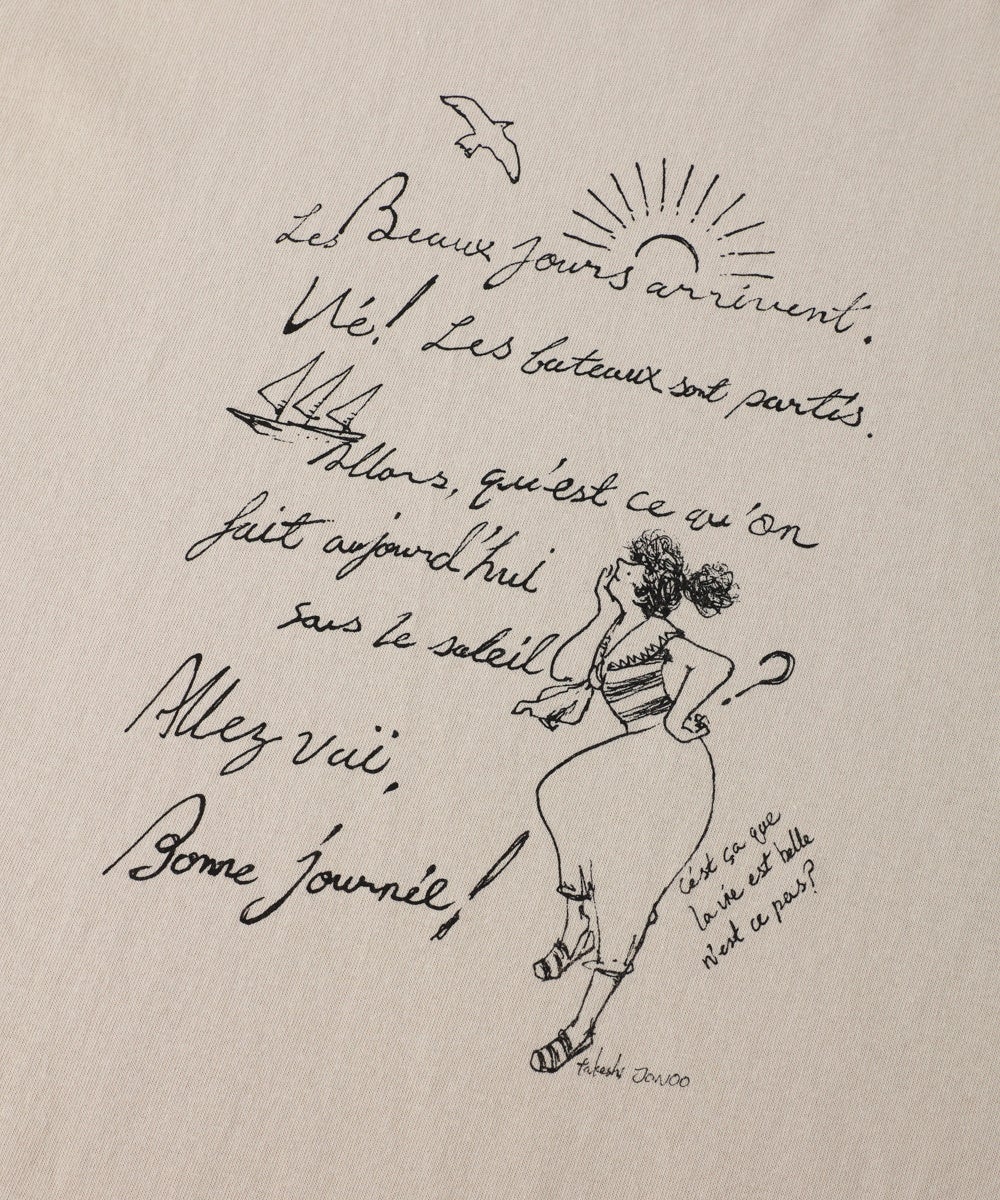 Les Beaux jours arrivent.
Vé! Les bateaux sont partis.
Allors, qu'est ce qu'on
fait aujourd'hui
sous le soleil?
Allez vaï,
Bonne journée!
c'est ça que
la vie est belle
n'est ce pas?
Takeshi JONOO